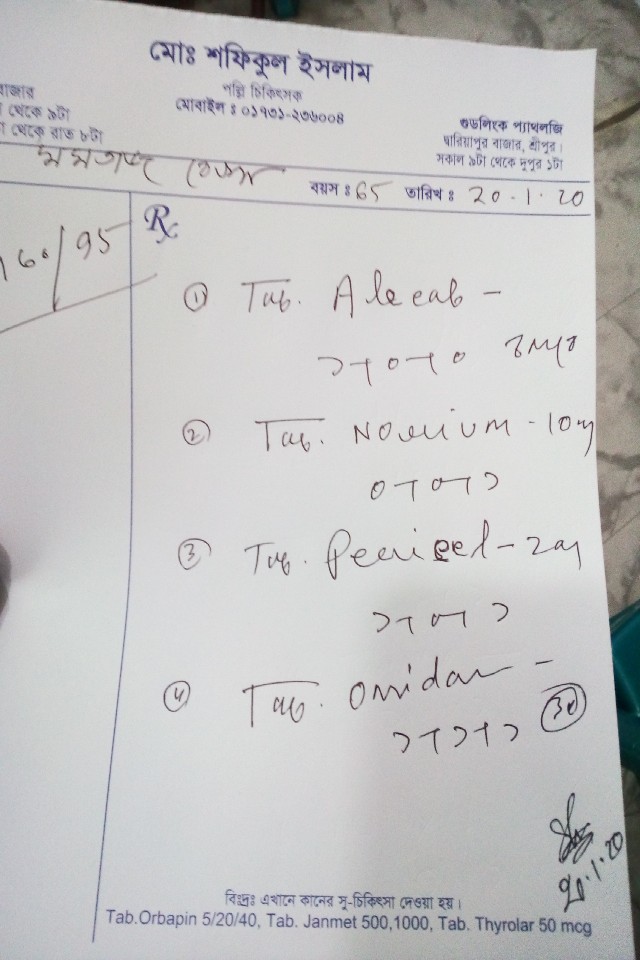 মোঃ শফিকুল ইসলাম
পল্লি চিকিৎসক
মোবাইল ঃ ০১৭৩১-২৩৬০০৪
বাজার
থেকে ৯টা
থেকে রাত ৮টা
গুডলিংক প্যাথলজি
দ্বারিয়াপুর বাজার, শ্রীপুর।
সকাল ৯টা থেকে দুপুর ১টা
বয়স ঃ 65 তারিখ ঃ 20.1.20
160/95
Rx
① Tab.
১+০+০
② Tab. - 10mg
০+০+১
③ Tab. - 2mg
১+০+১
④ Tab. Omidon -
১+১+১ 30
20.1.20
বিঃদ্রঃ এখানে কানের সু-চিকিৎসা দেওয়া হয়।
Tab.Orbapin 5/20/40, Tab. Janmet 500,1000, Tab. Thyrolar 50 mcg